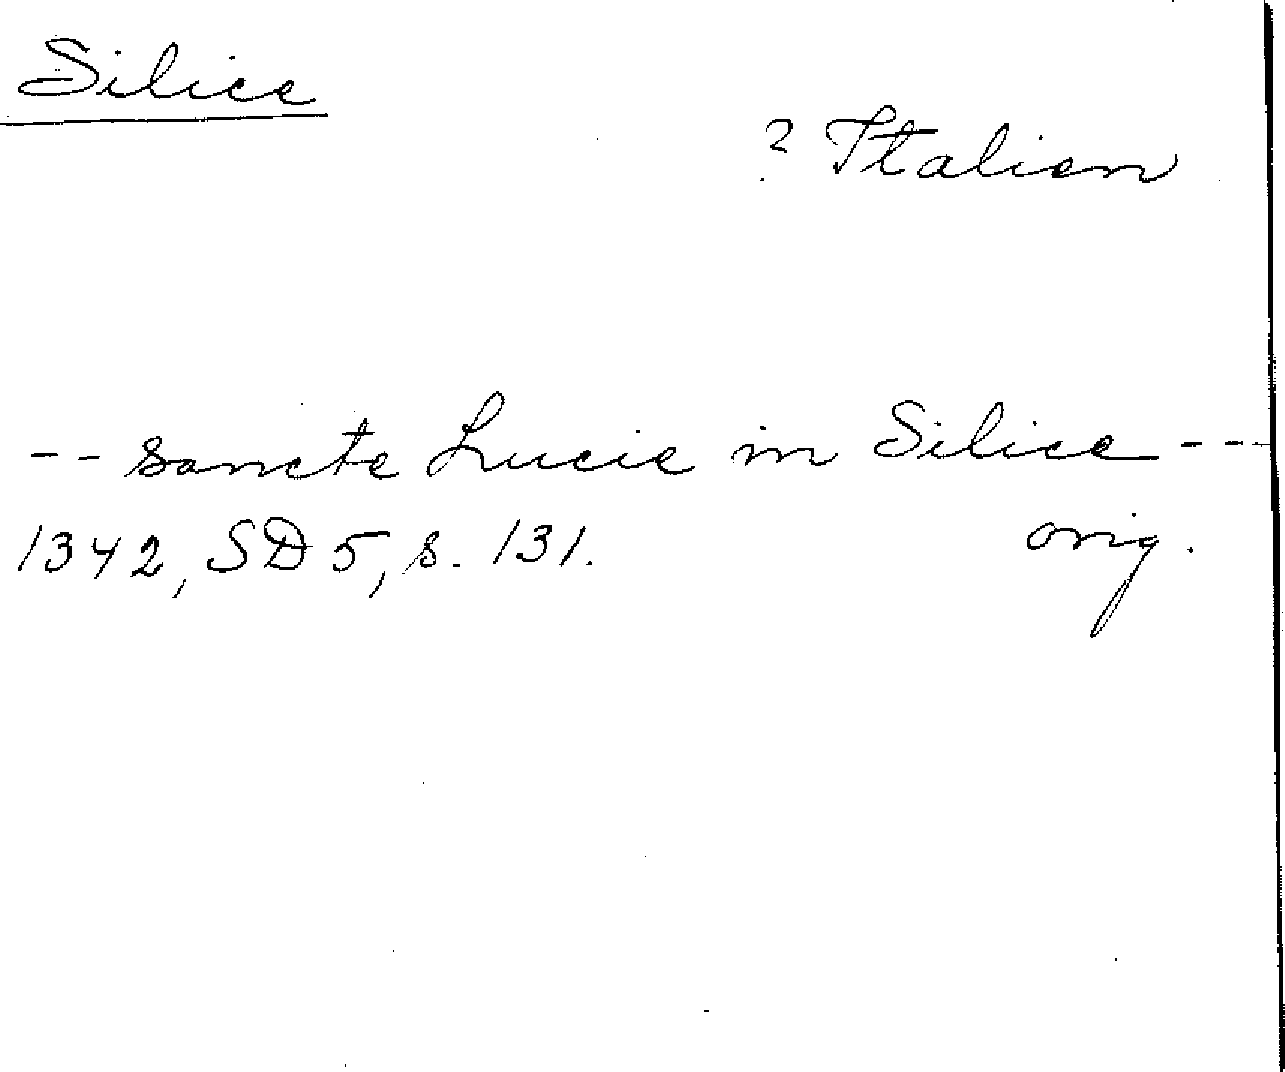 Silice
? Italien
-- sancte Lucie in Silice ---
1342, SD 5, s. 131. orig.